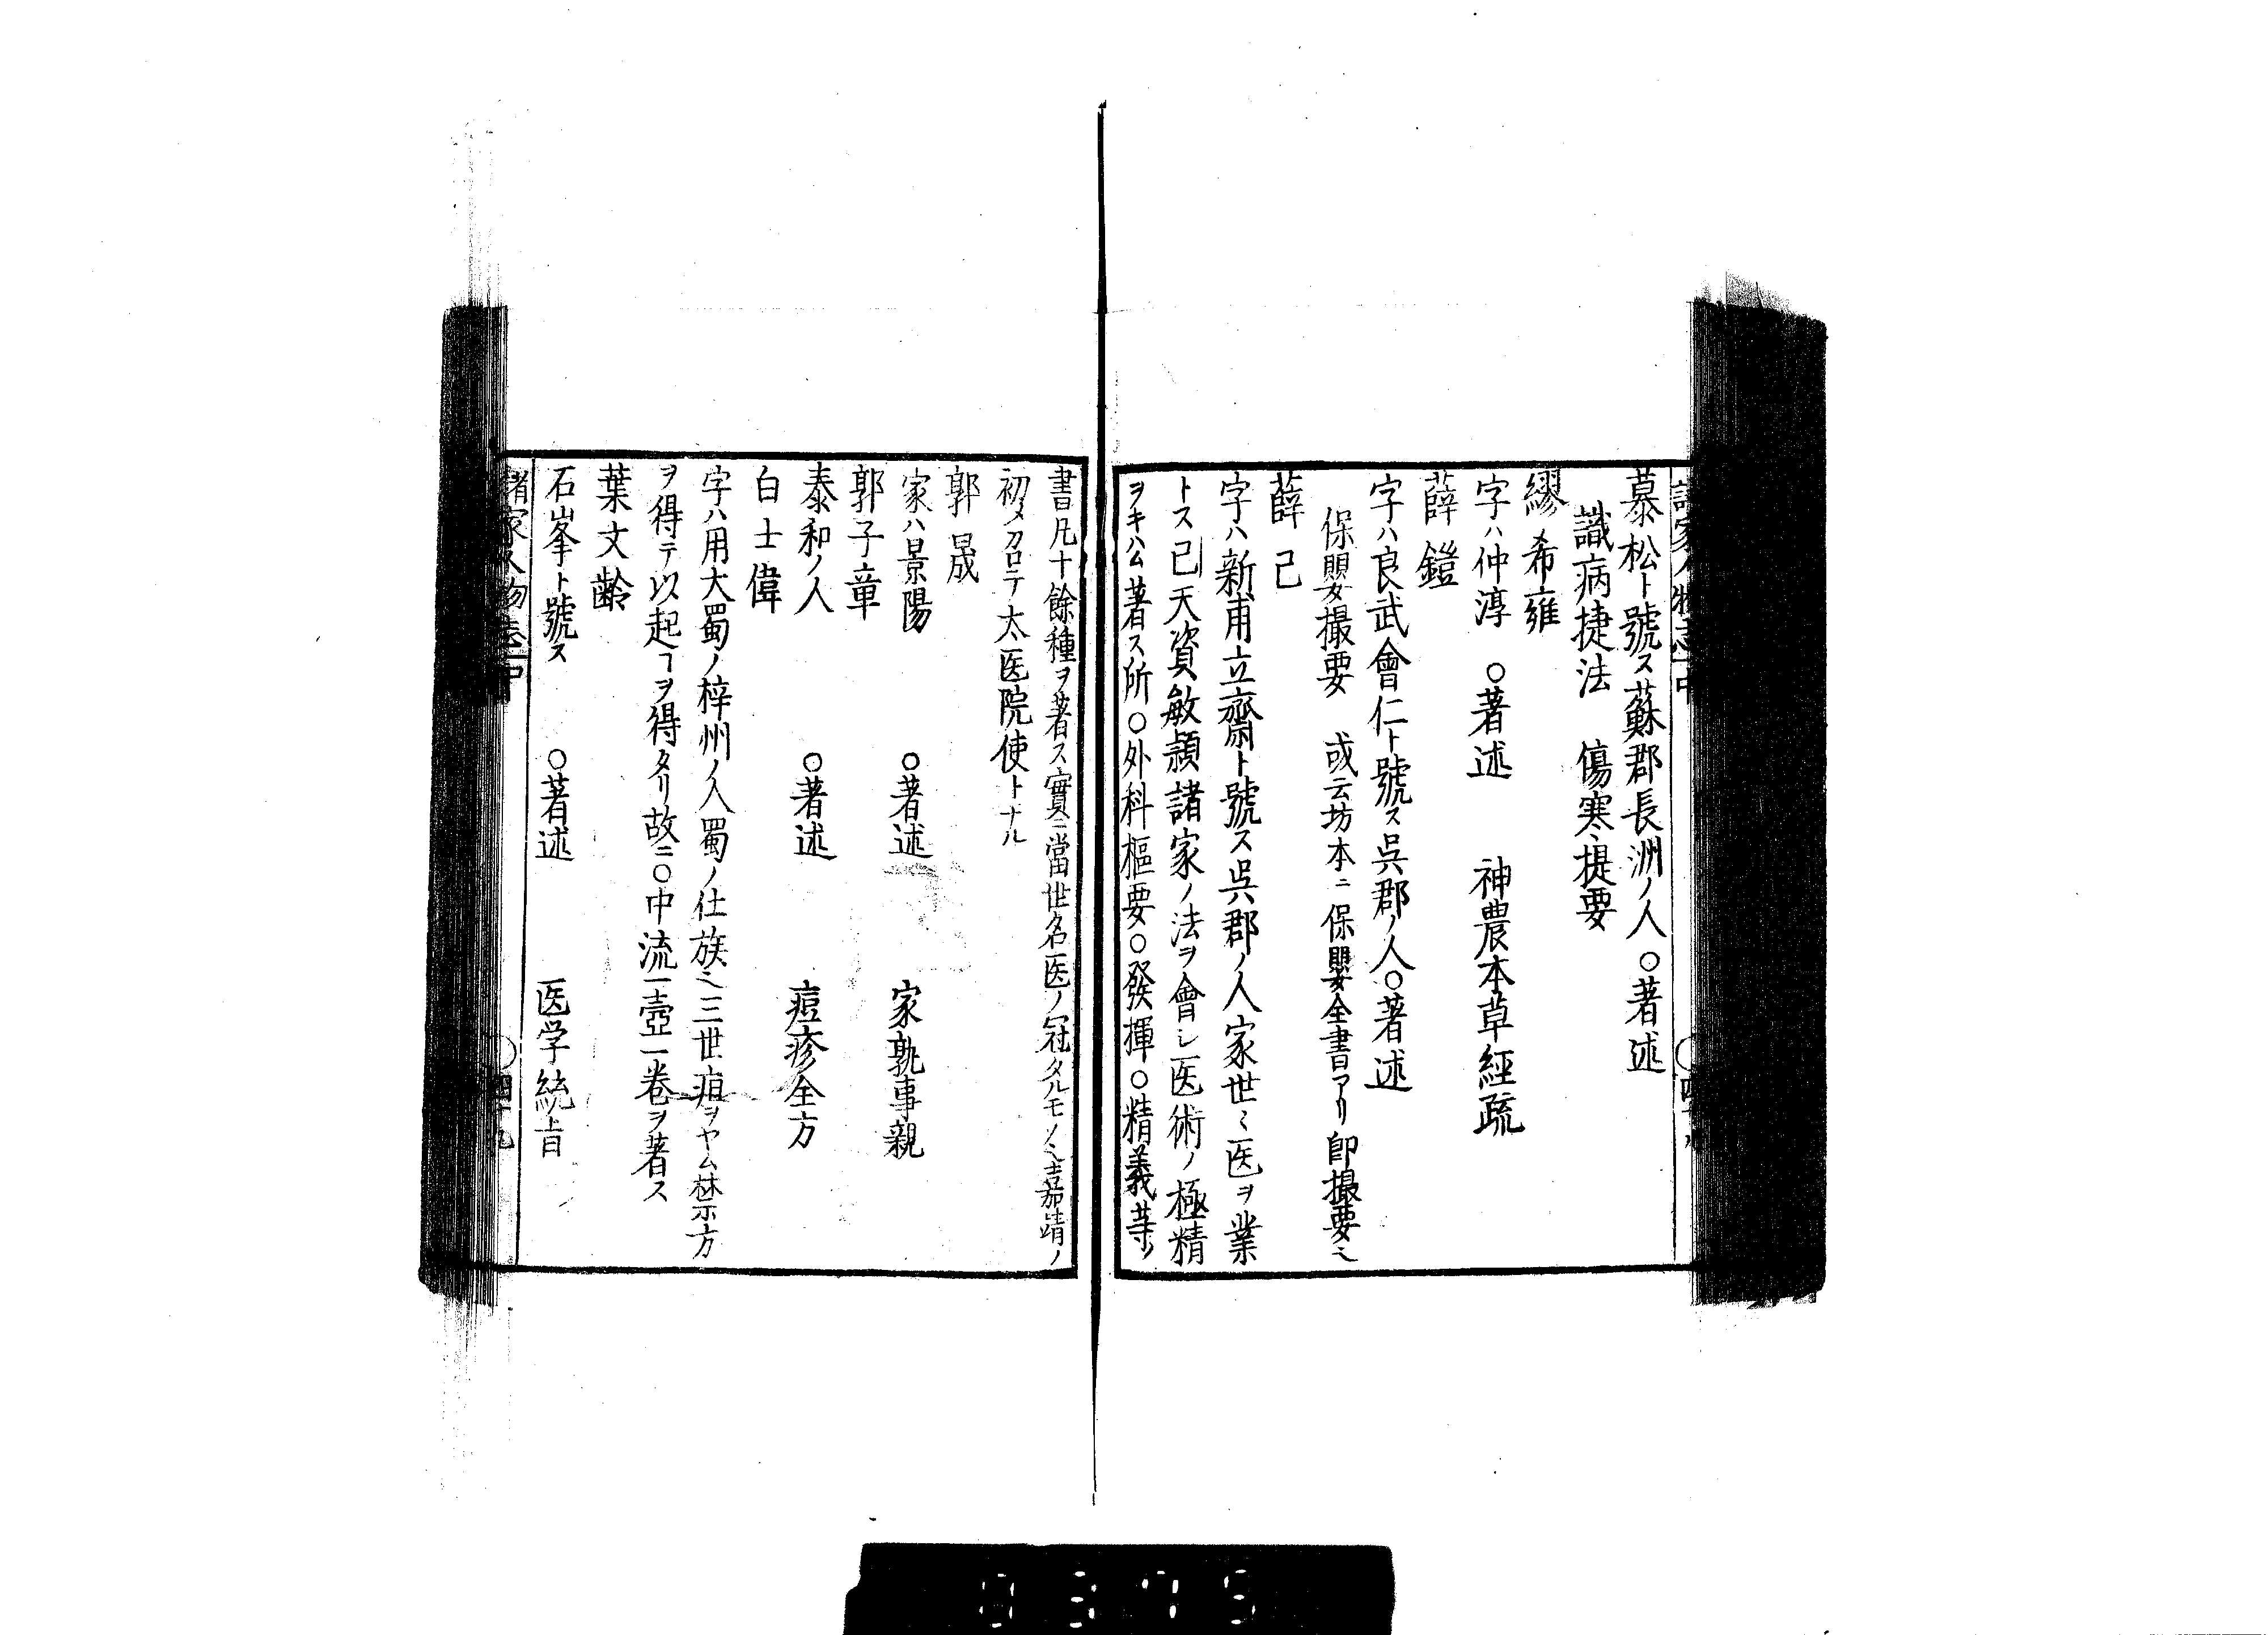 慕松ト號ス蘇郡長洲ノ人○著述
識病捷法　傷寒提要
繆希雍
字ハ仲淳　○著述　神農本草經疏
薛鎧
字ハ良武會仁ト號ス呉郡ノ人○著述
保嬰撮要　或云坊本ニ保嬰全書アリ即撮要ミ
薛己
字ハ新甫立齋ト號ス呉郡ノ人家世ミ医ヲ業
トス己天資敏頴諸家ノ法ヲ會シ医術ノ極精
ヲキハム著ス所○外科樞要○發揮○精義等ノ
書凡十餘種ヲ著ス實ニ當世名医ノ冠タルモノミ嘉靖ノ
初メ召ロテ太医院使トナル
郭晟
家ハ景陽　○著述　家孰事親
郭子章
泰和ノ人　○著述　痘疹全方
白士偉
字ハ用大蜀ノ梓州ノ人蜀ノ仕族ミ三世疽ヲヤム禁方
ヲ得テ以起ヿヲ得タリ故ニ○中流一壺一巻ヲ著ス
葉文齢
石峯ト號ス　○著述　医学統旨
諸家人物志中　○四十九
0379